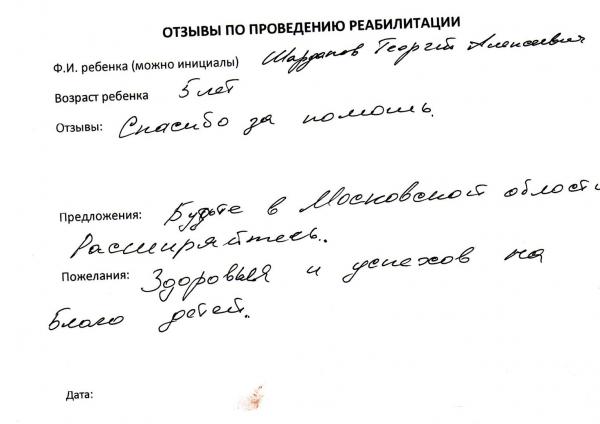 ОТЗЫВЫ ПО ПРОВЕДЕНИЮ РЕАБИЛИТАЦИИ
Ф.И. ребенка (можно инициалы) Шарданов Георгий Алексеевич
Возраст ребенка 5 лет
Отзывы: Спасибо за помощь.
Предложения: Будьте в Московской области
Расширяйтесь.
Пожелания: Здоровья и успехов на
благо детей.
Дата: